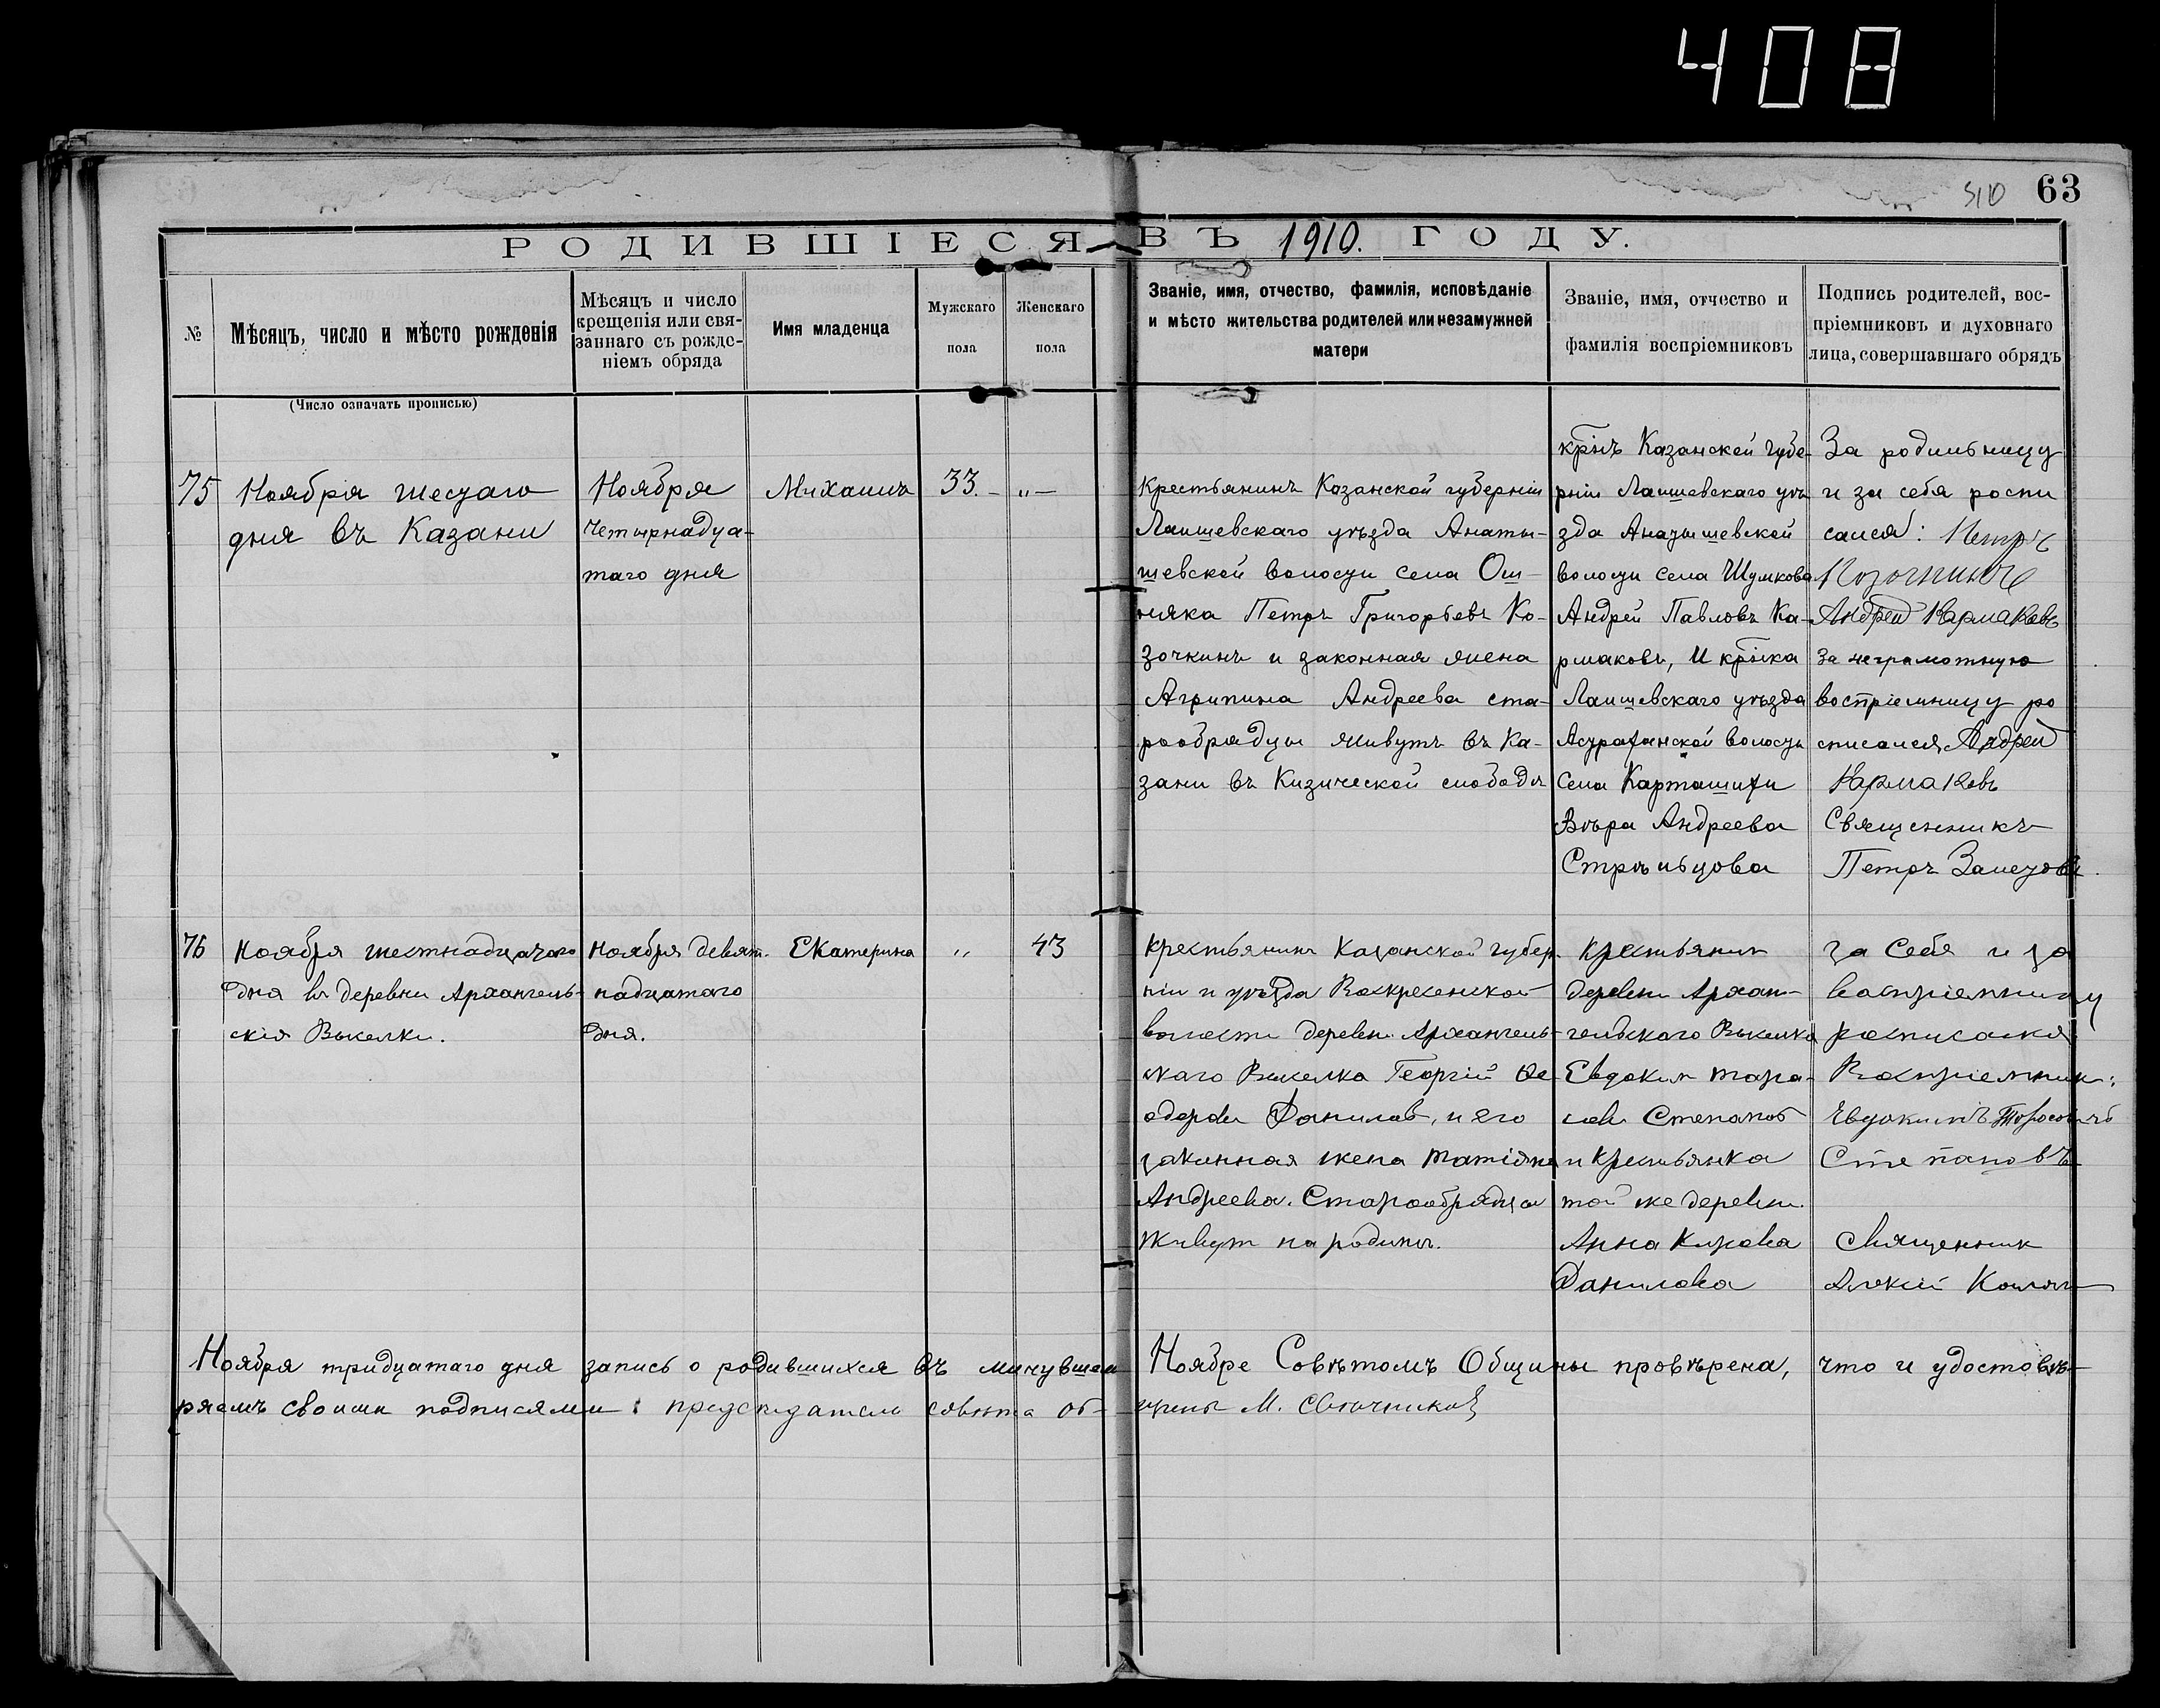 408
510 63
РОДИВШІЕСЯ ВЪ 1910. ГОДУ.
№
Мѣсяцъ, число и мѣсто рожденія
Мѣсяцъ и число
крещенія или свя-
заннаго съ рожде-
ніемъ обряда
Имя младенца
Мужскаго
пола
Женскаго
пола
Званіе, имя, отчество, фамилія, исповѣданіе
и мѣсто жительства родителей или незамужней
матери
Званіе, имя, отчество и
фамилія воспріемниковъ
Подпись родителей, вос-
пріемниковъ и духовнаго
лица, совершавшаго обрядъ
(Число означать прописью)
75
Ноября шестаго
дня въ Казани
Ноября
четырнадца-
таго дня
Михаилъ
33. –
„ –
Крестьянинъ Казанской губерніи
Лаишевскаго уѣзда Анаты-
шевской волости села Ош-
няка Петръ Григорьевъ Ко-
зочкинъ и законная жена
Агрипина Андреева ста-
рообрядцы живутъ въ Ка-
зани въ Кизической слободѣ
крнъ Казанской губе-
рніи Лаишевскаго уѣ-
зда Анатышевской
волости села Шумкова
Андрей Павловъ Ка-
рмаковъ, и крнка
Лаишевскаго уѣзда
Астраханской волости
села Карташихи
Вѣра Андреева
Стрѣльцова
За родильницу
и за себя распи
сался: Петръ
Козочкинъ
Андрей Кармаковъ
за неграмотную
воспріемницу ро
списался, Андрей
Кармаковъ
Священникъ
Петръ Залетовъ.
76
Ноября шестнадцатого
дня въ деревни Архангель-
скія Выселки.
Ноября девят-
надцатаго
дня.
Екатерина
„
43
Крестьянинъ Казанской губер-
ніи и уѣзда Воскресенской
волости деревни Архангель-
скаго Выселка Георгій Ѳе-
одоровъ Даниловъ, и его
законная жена Татіяна
Андреева. Старообрядцы
Живутъ на родинѣ.
Крестьянинъ
деревни Архан-
гельского Выселка
Евдокимъ Тара-
совъ Степановъ
и крестьянка
той же деревни
Анна Кирова
Данилова
За себя и за
воспріемницу
росписался
Воспріемникъ:
Евдокимъ Торосовичъ
Степановъ
Священникъ
Алексій
Ноября тридцатаго дня запись о родившихся въ минувшем Ноябре Совѣтомъ Общины провѣрена, что и удостовѣ-
ряемъ своими подписями: председатель совѣта об-щины М. Свѣчниковъ